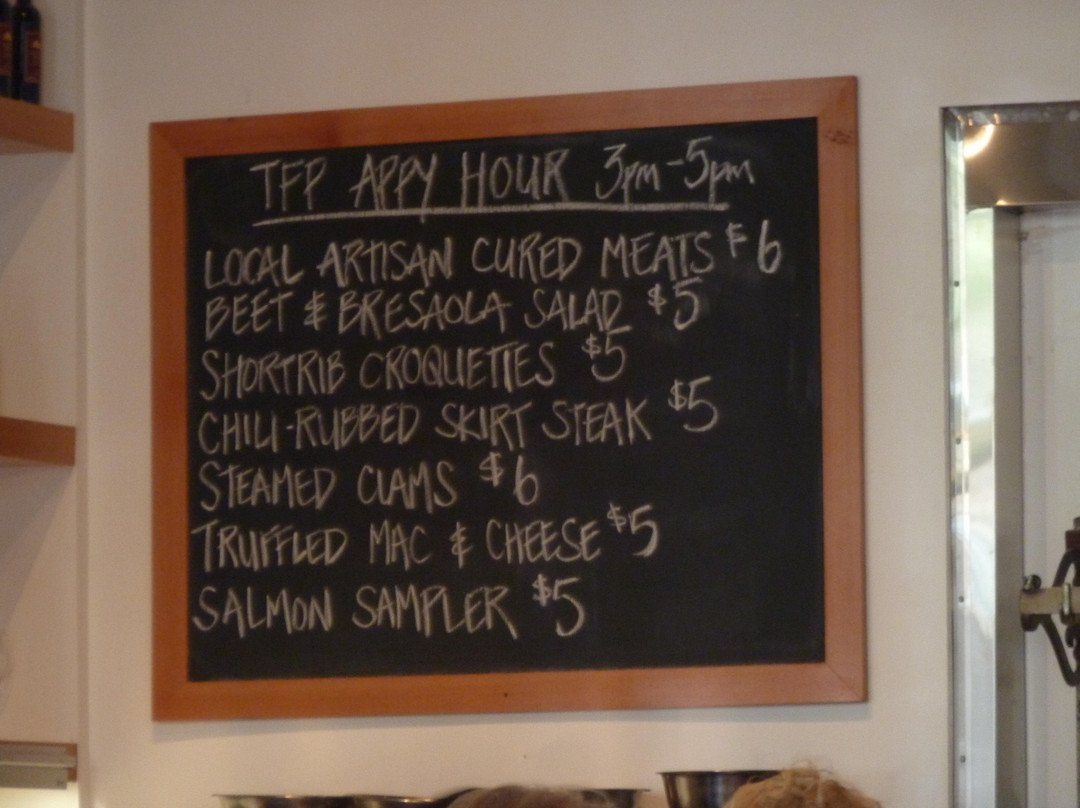 TFP APPY HOUR 3pm-5pm
LOCAL ARTISAN CURED MEATS $6
BEET & BRESAOLA SALAD $5
SHORTRIB CROQUETTES $5
CHILI-RUBBED SKIRT STEAK $5
STEAMED CLAMS $6
TRUFFLED MAC & CHEESE $5
SALMON SAMPLER $5